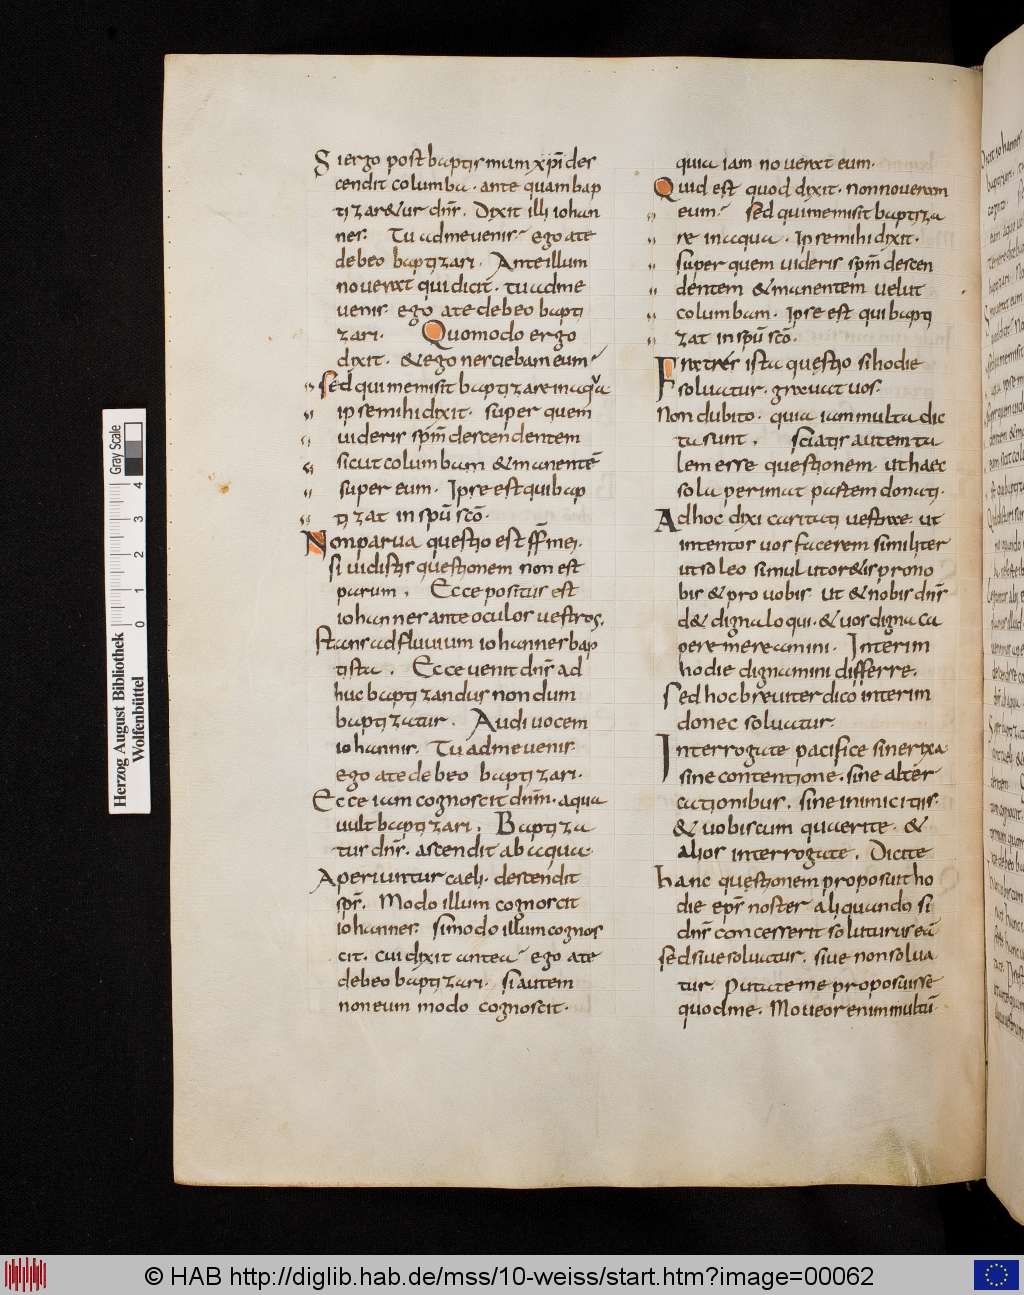 Si ergo post baptismum xpi des
cendit columba. ante quam bap
tizaretur dns. Dixit illi iohan
nes. Tu ad me venis? ego a te
debeo baptizari. Ante illum
noverat qui dicit. tu ad me
venis. ego a te debeo bapti
zari. Quomodo ergo
dixit. & ego nesciebam eum?
sed qui me misit baptizare in aqua
ipse mihi dixit. super quem
uideris spm descendentem
sicut columbam & manente
super eum. Ipse est qui bap
tizat in spu sco.
Non parua questio est ff mei.
si uidistis questionem non est
parum. Ecce positus est
iohannes ante oculos uestros.
stans ad fluuium iohannes bap
tista. Ecce uenit dns ad
huc baptizandus nondum
baptizatur. Audi uocem
iohannis. Tu ad me uenis.
ego a te debeo baptizari.
Ecce iam cognoscit dnm. a quo
uult baptizari. Baptiza
tur dns. ascendit ab aqua.
Aperiuntur caeli. descendit
sps. Modo illum cognoscit
iohannes. si modo illum cognos
cit. cui dixit antea? ego a te
debeo baptizari. si autem
non eum modo cognoscit.
quia iam noverat eum.
Quid est quod dixit. non noveram
eum? sed qui me misit baptiza
re in aqua. Ipse mihi dixit.
super quem uideris spm descen
dentem & manentem velut
columbam. Ipse est qui bapti
zat in spu sco.
Fratres ista questio si hodie
soluatur. grauat uos.
Non dubito. quia iam multa dic
ta sunt. sciatis autem ta
lem esse questionem. ut haec
sola perimat partem donati.
Ad hoc dixi caritati uestrae. ut
intentos uos facerem similiter
ut soleo simul ut oretis pro no
bis & pro uobis. ut & nobis dns
det digna loqui. & uos digna ca
pere mereamini. Interim
hodie dignamini differre.
sed hoc breuiter dico interim
donec soluatur
Interrogate pacifice sine rixa.
sine contentione. sine alter
cationibus. sine inimicitiis.
& uobiscum quaerite. &
alios interrogate. Dicite
hanc questionem proposuit ho
die eps noster aliquando si
dns concesserit soluturus ea
sed siue soluatur. siue non solua
tur. Putate me proposuisse
quod me. Moueor enim multu
Herzog August Bibliothek
Wolfenbüttel
Gray Scale
0 1 2 3 4
© HAB http://diglib.hab.de/mss/10-weiss/start.htm?image=00062